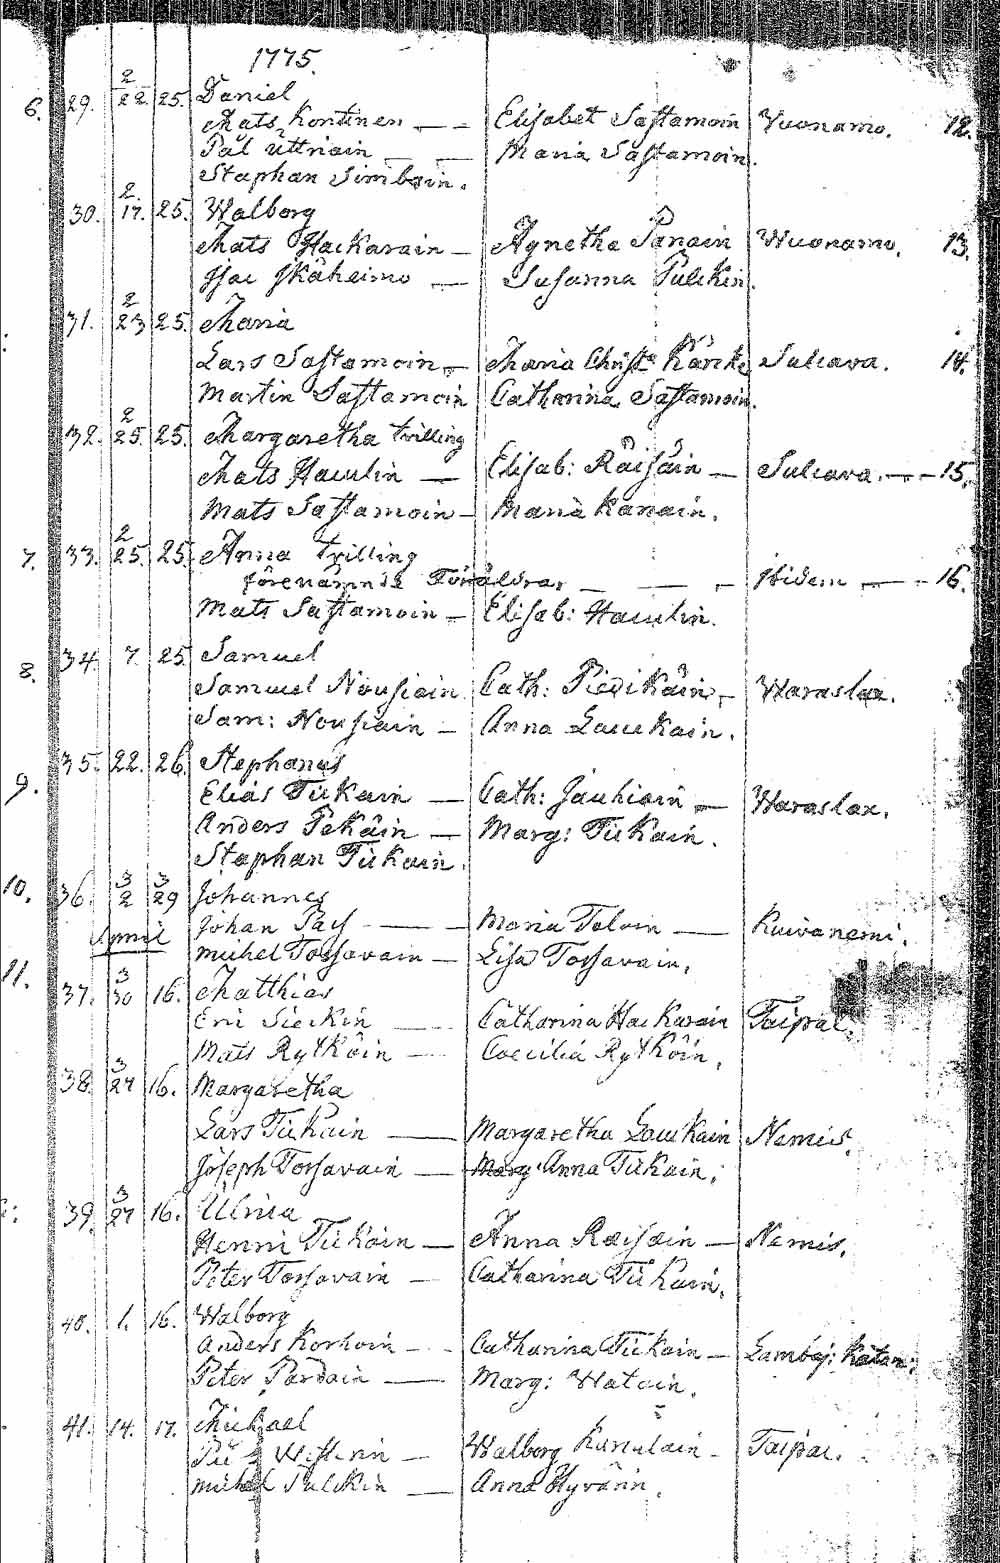 1775.
6. 29. 2/22. 25. Daniel
Mats Kontinen — Elisabet Sastamoin Vuonamo. 12.
Pål Uttriain — Maria Sastamoin.
Staphan Simboin.
30. 2/17. 25. Walborg
Mats Hackarain — Agnetha Panain Wuonamo. 13.
Isac Ikäheimo — Susanna Pulckin.
31. 2/23 25. Maria
Lars Sastamoin — Maria Christ. Kärcke Sukava. 14.
Martin Sastamoin Catharina Sastamoin.
32. 2/25. 25. Margaretha trilling
Mats Haulin — Elisab: Räisäin — Sukava. — 15.
Mats Sastamoin — Maria Kanain.
7. 33. 2/25. 25. Anna trilling
förenämnde Föräldrar — Ibidem — 16.
Mats Sastamoin — Elisab: Haulin.
8. 34. 7. 25. Samuel
Samuel Nousiain Cath: Piedikäin — Waraslax.
Sam: Nousiain — Anna Laukain.
9. 35. 22. 26. Stephanus
Elias Tickain — Cath: Jauhiain — Waraslax.
Anders Pekäin — Marg: Tickain.
Staphan Tickain.
10. 36. 3/2 3/29 Johannes
Johan Pass — Maria Tolvin — Kuivanemi.
April
Michel Tossavain — Lisa Tossavain.
11. 37. 3/30 16. Matthias
Eric Sieckin — Catharina Hackarain Taipal.
Mats Rytköin — Coecilia Rytköin.
38. 3/27 16. Margaretha
Lars Tickain — Margaretha Laukain Nemis.
Joseph Tossavain — Marg: Anna Tickain.
39. 3/27 16. Ulrica
Henric Tickain — Anna Raisain — Nemis.
Peter Tossavain — Catharina Tickain.
40. 1. 16. Walborg
Anders Korhoin — Catharina Tickain — Lambaj:
Peter Pardain — Marg: Watain.
41. 14. 17. Michael
Westerin — Walborg Kurulain — Taipal.
Michel Pulckin — Anna Hyvärin.